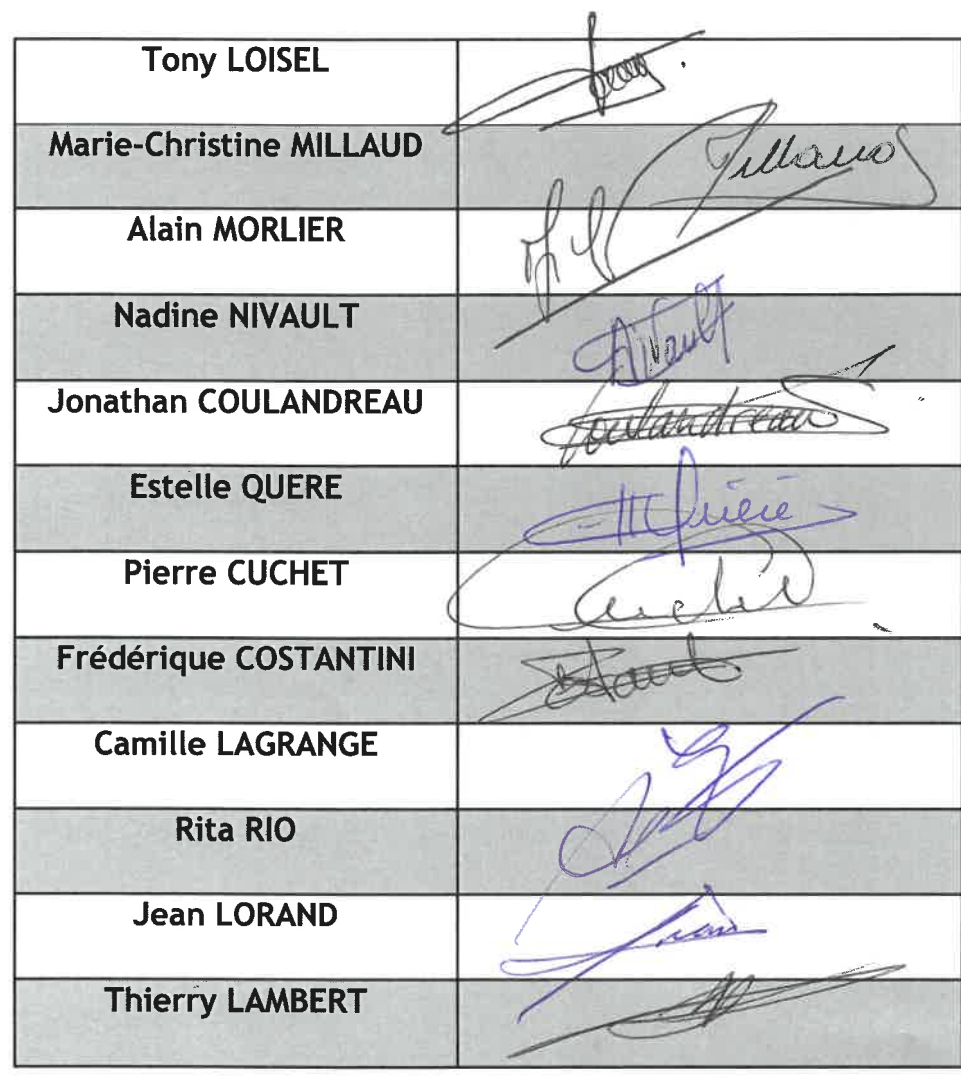 Tony LOISEL
Marie-Christine MILLAUD
Millaud
Alain MORLIER
Nadine NIVAULT
Nivault
Jonathan COULANDREAU
Coulandreau
Estelle QUERE
Quéré
Pierre CUCHET
Cuchet
Frédérique COSTANTINI
Camille LAGRANGE
Rita RIO
Jean LORAND
Thierry LAMBERT